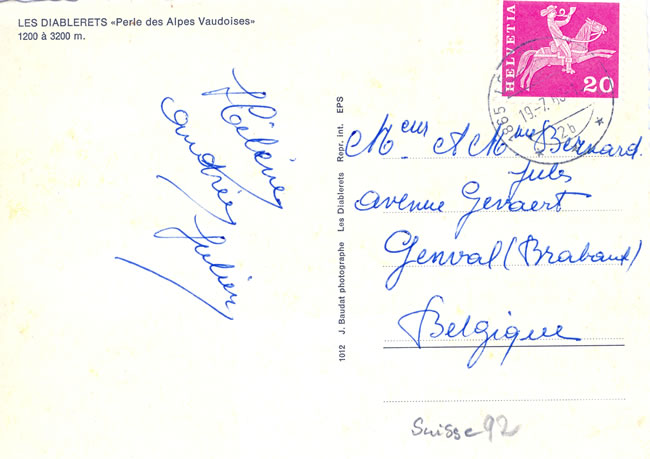 LES DIABLERETS «Perle des Alpes Vaudoises»
1200 à 3200 m.
Hélène
Andrée
Julien
1012 J. Baudat photographe Les Diablerets Repr. int. EPS
HELVETIA
20
1865
19.-7.
2b
Mr et Mme Bernard
Jules
avenue Gevaert
Genval (Brabant)
Belgique
Suisse 92